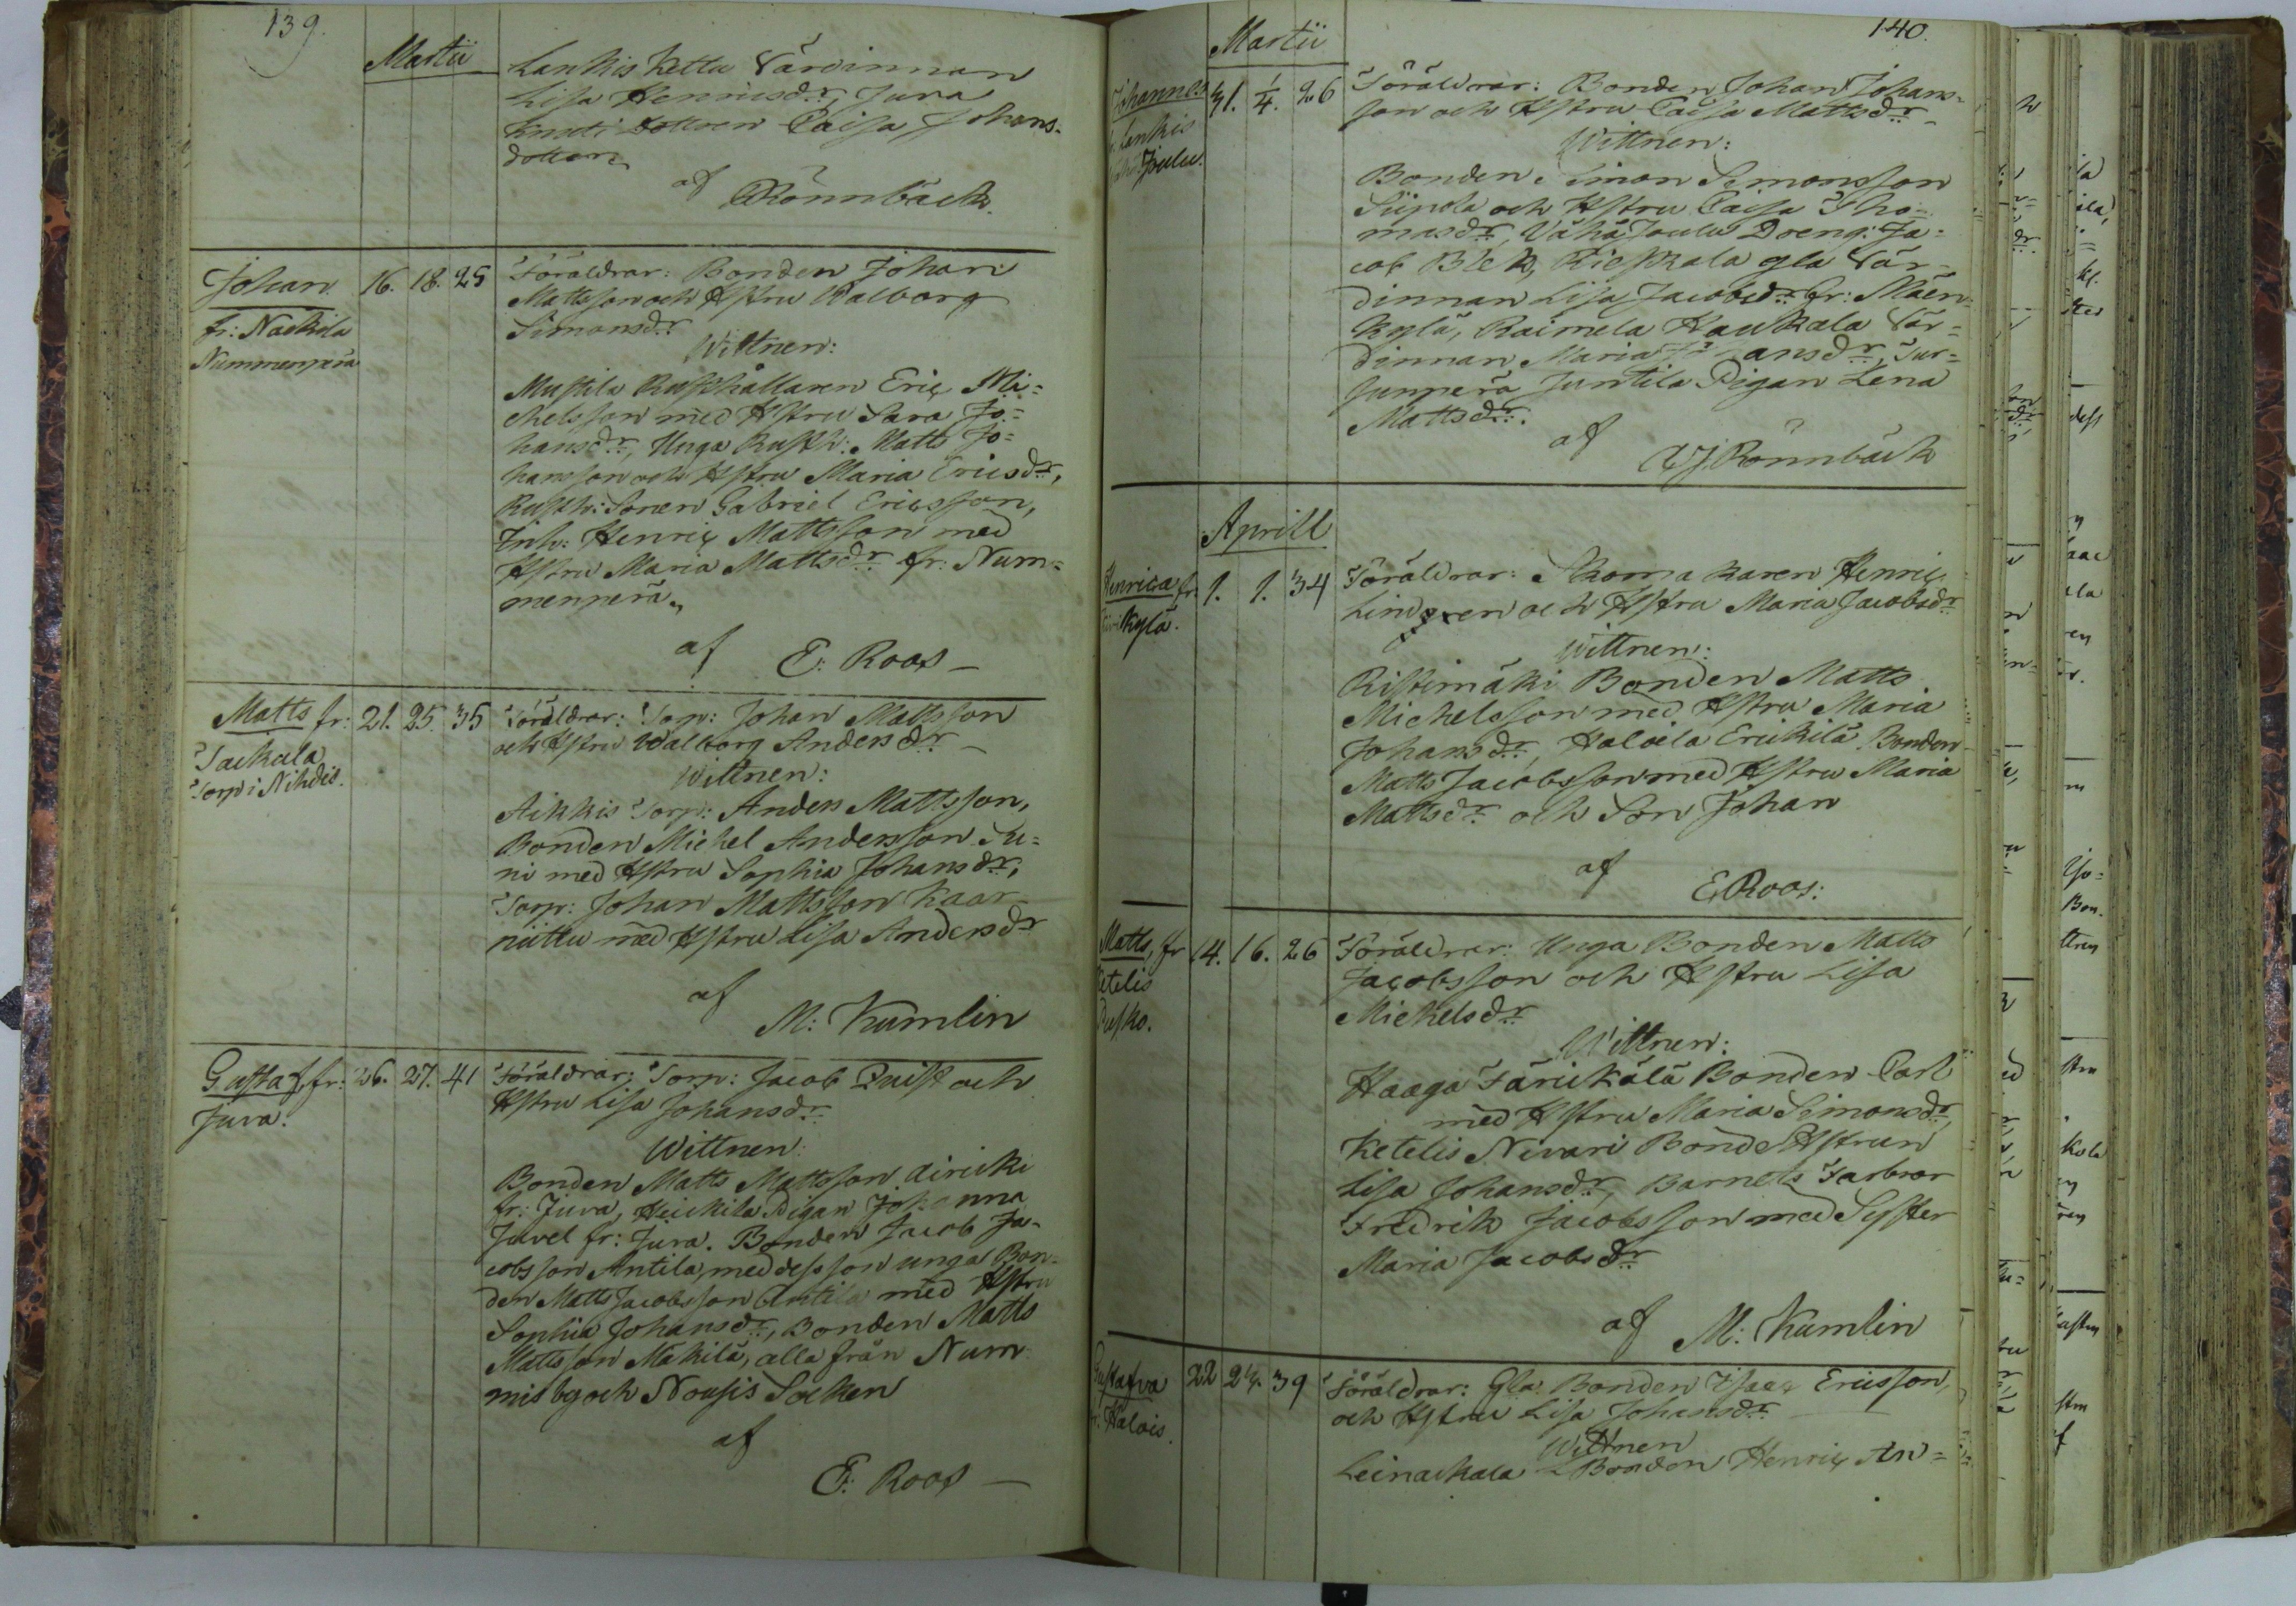 139.
Martii
Lankis Kettu Värdinnan
Lisa Henricsdr, Juva
Knuti Dottren Caisa Johans-
dotter
af Rönnbäck.
Johan 16. 18. 25 Föräldrar: Bonden Johan
fr: Nackila Mattsson och Hstru Walborg
Nummenpää Simonsdr
Wittnen:
Mustila Rusthållaren Eric Mi=
chelsson med Hstru Sara Jo=
hansdr, Unga Rusth: Matts Jo=
hansson och Hstru Maria Ericsdr,
Rusth: Sonen Gabriel Ericsson,
Inh: Henric Mattsson med
Hstru Maria Mattsdr fr: Num=
menperä.
af E: Roos
Matts fr: 21. 25. 35 Föräldrar: Torp: Johan Mattsson
Tackala och Hstru Walborg Andersdr
Torp i Nihdis. Wittnen:
Aikkis Torp: Anders Mattsson,
Bonden Michel Andersson Su=
ni med Hstru Sophia Johansdr,
Torp: Johan Mattsson Kaar
niittu med Hstru Lisa Andersdr
af
M: Kumlin
Gustaf, fr: 26. 27. 41 Föräldrar: Torp: Jacob Quist och
Juva. Hstru Lisa Johansdr
Wittnen:
Bonden Matts Mattsson Äiricki
fr: Juva, Heickila Pigan Johanna
Juvel fr: Juva. Bonden Jacob Ja-
cobsson Antila, med dess son unga Bon-
den Matts Jacobsson Antila med Hstru
Sophia Johansdr, Bonden Matts
Mattsson Mäkilä, alla från Num
mis by och Nousis Socken
af
E: Roos
140.
Martii
Johannes 31. 1/4. 26 Föräldrar: Bonden Johan Johans-
Lankis son och Hstru Caisa Mattsdr
Joulu. Wittnen:
Bonden Simon Simonsson
Siipola och Hstru Caisa Tho=
masdr, Vähä Joulu Dreng: Ja=
cob Blek, Rieskala gla Vär-
dinnan Lisa Jacobsdr fr: Mäen
kylä, Raimela Haukala Vär=
dinnan Maria Johansdr, Tur=
junperä Juntila Pigan Lena
Mattsdr.
af Rönnbäck
Aprill
Henrica fr. 1. 1. 34 Föräldrar: Skomakaren Henric
kylä. Lindgren och Hstru Maria Jacobsdr
Wittnen:
Ristimäki Bonden Matts
Michelsson med Hstru Maria
Johansdr, Haloila Erickilä Bonden
Matts Jacobsson med Hstru Maria
Mattsdr och Son Johan
af E Roos:
Matts, fr 14. 16. 26 Föräldrar: Unga Bonden Matts
Ketelis Jacobsson och Hstru Lisa
Michelsdr
Wittnen:
Haaga Färickälä Bonden Carl
med Hstru Maria Simonsdr,
Ketelis Nivari Bonde Hstrun
Lisa Johansdr, Barnets Farbror
Fredrik Jacobsson med Syster
Maria Jacobsdr
af M: Kumlin
Gustafva 22 24. 39 Föräldrar: Gla Bonden Isaac Ericsson,
fr: Halois. och Hstru Lisa Johansdr
Wittnen
Leinackala Bonden Henric An=